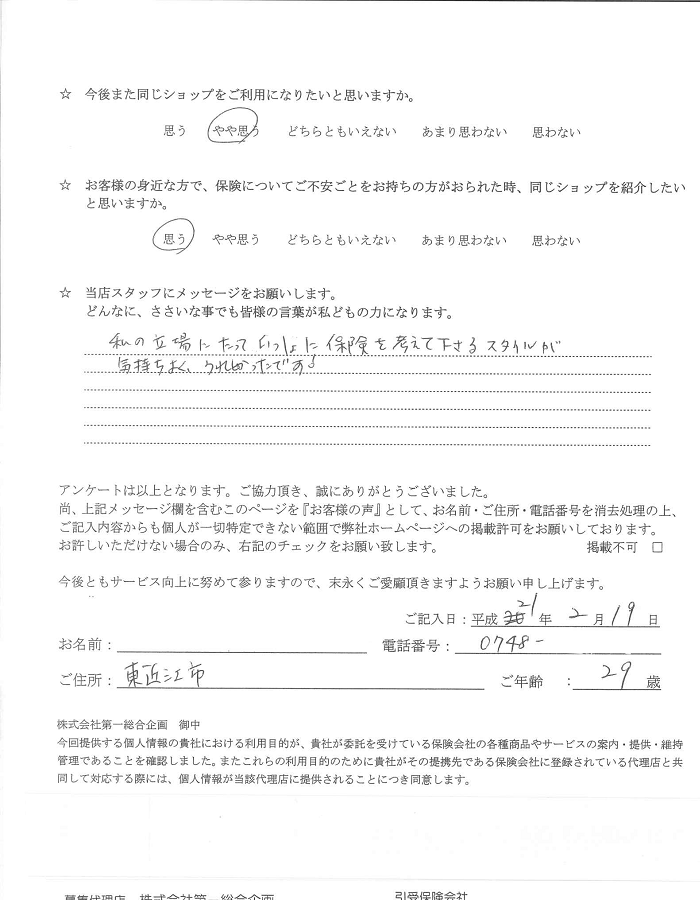 ☆ 今後また同じショップをご利用になりたいと思いますか。
思う やや思う どちらともいえない あまり思わない 思わない
☆ お客様の身近な方で、保険についてご不安ごとをお持ちの方がおられた時、同じショップを紹介したい
と思いますか。
思う やや思う どちらともいえない あまり思わない 思わない
☆ 当店スタッフにメッセージをお願いします。
どんなに、ささいな事でも皆様の言葉が私どもの力になります。
私の立場にたっていっしょに保険を考えて下さるスタイルが
気持ちよく、うれしかったです!
アンケートは以上となります。ご協力頂き、誠にありがとうございました。
尚、上記メッセージ欄を含むこのページを『お客様の声』として、お名前・ご住所・電話番号を消去処理の上、
ご記入内容からも個人が一切特定できない範囲で弊社ホームページへの掲載許可をお願いしております。
お許しいただけない場合のみ、右記のチェックをお願い致します。 掲載不可 □
今後ともサービス向上に努めて参りますので、末永くご愛顧頂きますようお願い申し上げます。
ご記入日:平成 21 年 2 月 19 日
お名前: 電話番号: 0748-
ご住所: 東近江市 ご年齢 : 29 歳
株式会社第一総合企画 御中
今回提供する個人情報の貴社における利用目的が、貴社が委託を受けている保険会社の各種商品やサービスの案内・提供・維持
管理であることを確認しました。またこれらの利用目的のために貴社がその提携先である保険会社に登録されている代理店と共
同して対応する際には、個人情報が当該代理店に提供されることにつき同意します。
募集代理店 株式会社第一総合企画 引受保険会社